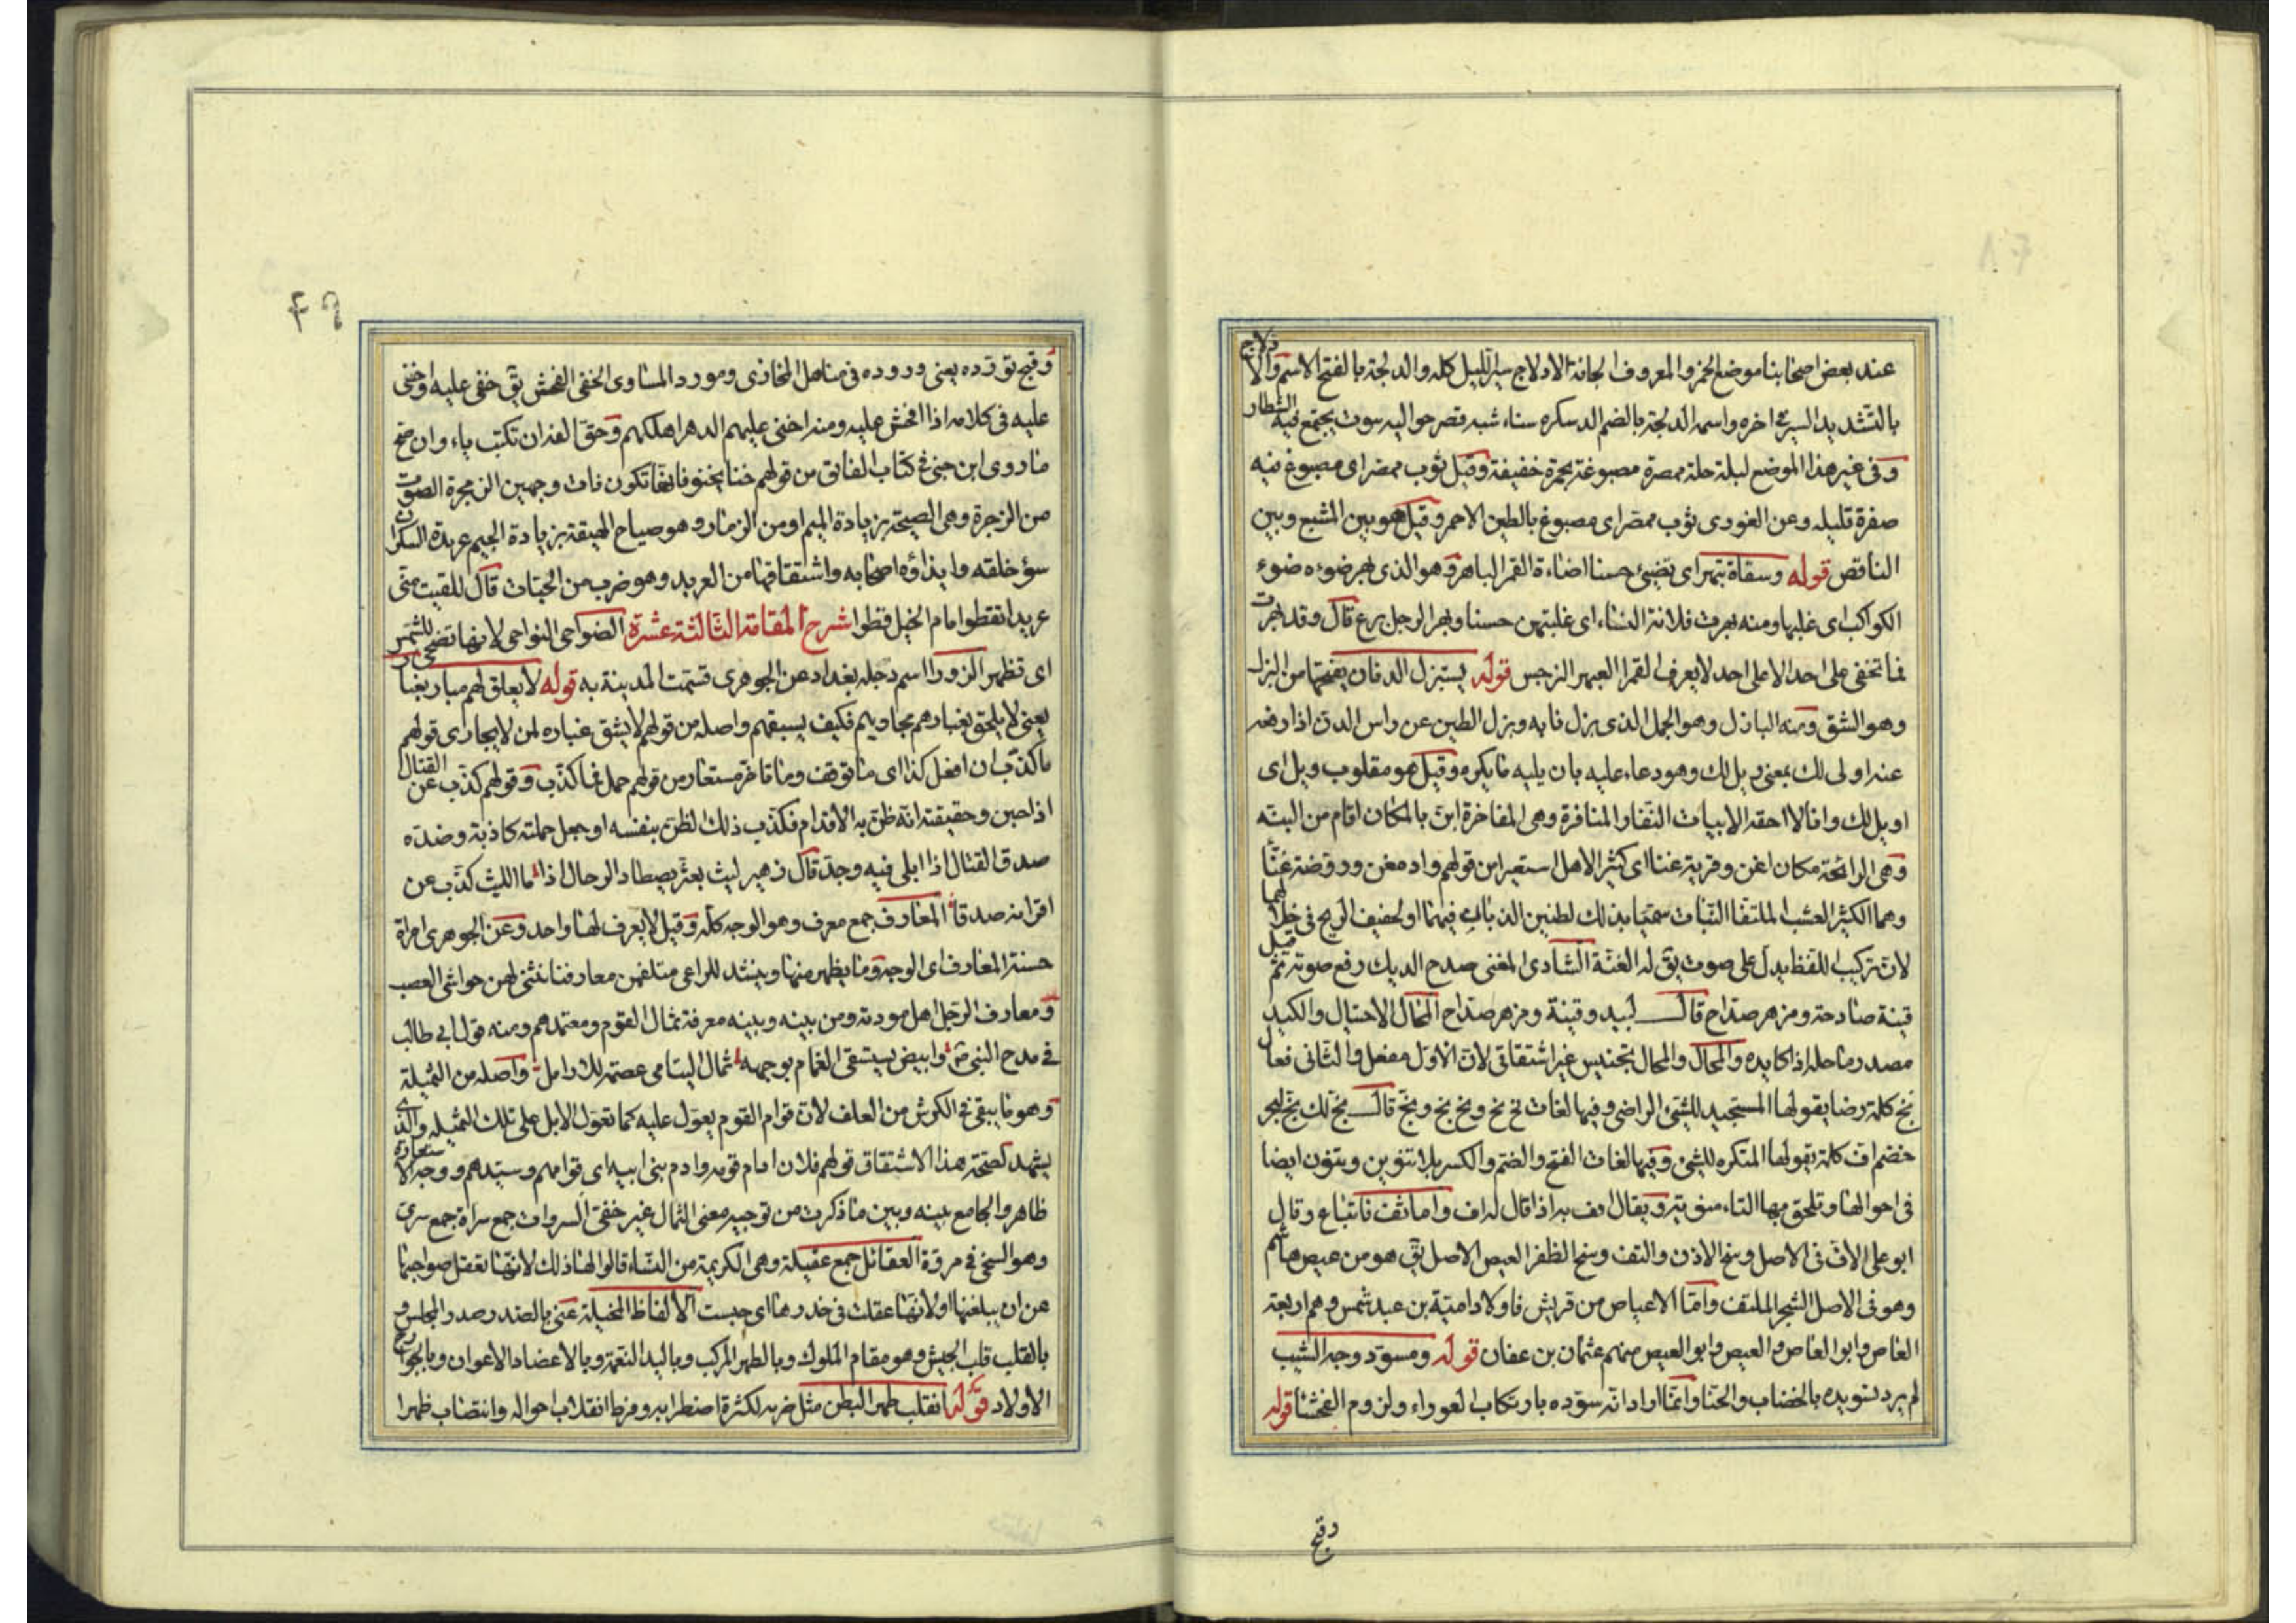 عند بعض اصحابنا موضع الخمر والمعروف الحانة الادلاج سير الليل كله والدلجة بالفتح الاسم والا دلاج
بالتشديد السير في اخره واسمه الدلجة بالضم الدسكره بناء شبه قصر حواليه بيوت يجتمع فيه الشطار
وفى غير هذا الموضع لبلة حلة ممصرة مصبوغة بحمرة خفيفة وقيل ثوب ممصر اى مصبوغ فيه
صفرة قليله وعن الغورى ثوب ممصر اى مصبوغ بالطين الاحمر وقيل هو بين المشبع وبين
الناقص قوله وسقاة تبهر اى تضيئ حسنا اضاءة القمر الباهر وهو الذى بهر ضوءه ضوء
الكواكب اى غلبها ومنه بهرت فلانة النساء اى غلبتهن حسنا وبهر الرجل برع قال وقد بهرت
فما تخفى على احد الا على احد لا يعرف القمرا العبهر النرجس قوله يستبزل الدنان يفتحها من البزل
وهو الشق ومنه البازل وهو الجمل الذى بزل نابه وبزل الطين عن راس الدن اذا رفعه
عنه اولى لك بمعنى ويل لك وهو دعاء عليه بان يليه ما يكره وقيل هو مقلوب ويل اى
اويل لك وانا لا احقه الابيات التنافر والمنافرة وهى المفاخرة ابن بالمكان اقام من البنه
وهى الرائحة مكان اغن وقرية غنا اى كثير الاهل استعير من قولهم واد مغن وروضة غنا
وهما الكثير العشب الملتف النبات سميا بذلك لطنين الذباب فيهما او لحفيف الريح فى خلالهما
لان تركيب اللفظ يدل على صوت يق له الغنة الشادى المغنى صدح الديك رفع صوته ثم قيل
قينة صادحة ومزهر صداح قال لبيد وقينة ومزهر صداح المحال الاحتيال والكيد
مصدر ماحله اذا كايده والمحال والمحال تجنيس غير اشتقاقى لان الاول مفعل والثانى فعال
بخ كلمة رضا يقولها المستجيد للشئ الراضى وفيها لغات بخ بخ وبخ بخ وبخ قال بخ لك بخ لبحر
خضم اف كلمة يقولها المتكره للشئ وفيها لغات الفتح والضم والكسر بلا تنوين وبتنون ايضا
فى احوالها وتلحق بها التاء منونة ويقال افف به اذا قال له اف واما تف فاتباع وقال
ابو على الاف فى الاصل وسخ الاذن والتف وسخ الظفر العيص الاصل يق هو من عيص هاشم
وهو فى الاصل الشجر الملتف واما الاعياص من قريش فاولاد امية بن عبد شمس وهم اربعة
العاص وابو العاص والعيص وابو العيص منهم عثمان بن عفان قوله ومسود وجه الشيب
لم يرد تسويده بالخضاب والحنا وانما اراد انه سوده بارتكاب العوراء ولزوم الفحشا قوله
وقبح
٤٩
وقبح تورده يعنى وروده فى مناهل المخازى ومورد المساوى الخنى الفحش يق خنى عليه واخنى
عليه فى كلامه اذا افحش عليه ومنه اخنى عليهم الدهر اهلكهم وحق الفه ان تكتب ياء وان صح
ما روى ابن جنى فى كتاب الفائق من قولهم خنا يخنو فانها تكون ذات وجهين الزمجرة الصوت
من الزجرة وهى الصيحة بزيادة الميم او من الزمار وهو صياح الهيقة بزيادة الجيم عربدة السكران
سؤ خلقه وايذاؤه اصحابه واشتقاقها من العربد وهو ضرب من الحيات قال للقيت متى
عربدا نقطوا امام الخيل قطوا شرح المقامة الثالثة عشرة الضواحى النواحى لانها تضحى للشمس
اى تظهر الزوراء اسم دجله بغداد عن الجوهرى قسمت المدينة به قوله لا يعلق لهم مبار بغبار
يعنى لا يلحق بغبارهم مجاريهم فكيف يسبقهم واصله من قولهم لا يشق غباره لمن لا يجارى قولهم
ما كذب ان افعل كذا اى ما توقف وما تاخر مستعار من قولهم حمل فما كذب وقولهم كذب عن القتال
اذا جبن وحقيقته انه ظن به الاقدام فكذب ذلك الظن بنفسه او جعل حملته كاذبة وضده
صدق القتال اذا ابلى فيه وجد قال زهير ليث بعثر يصطاد الرجال اذا ما الليث كذب عن
اقرانه صدقا المعارف جمع معرف وهو الوجه كله وقيل لا يعرف لها واحد وعن الجوهرى امراة
حسنة المعارف اى الوجه وما يظهر منها وينشد للراعى متلفمن معارفنا نثنى لهن حواشى العصب
ومعارف الرجل اهل مودته ومن بينه وبينه معرفة ثمال القوم ومعتمدهم ومنه قول ابى طالب
فى مدح النبى ص وابيض يستسقى الغمام بوجهه ثمال اليتامى عصمة للارامل واصله من الثميلة
وهو ما يبقى فى الكرش من العلف لان قوام القوم يعول عليه كما تعول الابل على تلك الثميله والذى
يشهد لصحة هذا الاشتقاق قولهم فلان امام قومه وادم بنى ابيه اى قوامهم وسيدهم ووجه الاستعارة
ظاهر والجامع بينه وبين ما ذكرت من توجيه معنى الثمال غير خفى السروات جمع سراة جمع سرى
وهو السخى فى مروة العقائل جمع عقيلة وهى الكريمة من النساء قالوا لها ذلك لانها تعقل صواحبها
عن ان يبلغنها او لانها عقلت فى خدرها اى حبست الالفاظ المخيلة عنى بالصدر صدر المجلس و
بالقلب قلب الجيش وهو مقام الملوك وبالظهر المركب وباليد النعمة وبالاعضاد الاعوان وبالجوارح
الاولاد قوله انقلب ظهرا لبطن مثل ضربه لكثرة اضطرابه وفرط انقلاب احواله وانتصاب ظهرا